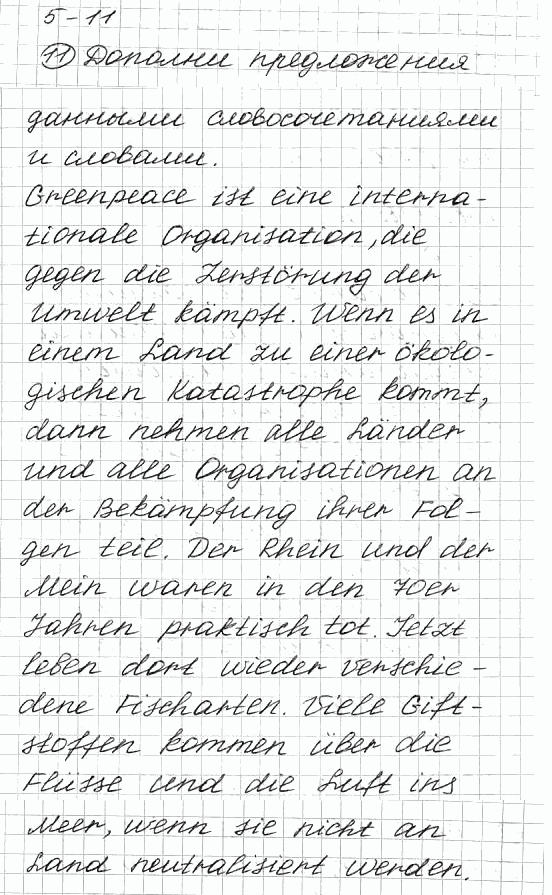 5-11
11 Дополни предложения
данными словосочетаниями
и словами.
Greenpeace ist eine interna-
tionale Organisation, die
gegen die Zerstörung der
Umwelt kämpft. Wenn es in
einem Land zu einer ökolo-
gischen Katastrophe kommt,
dann nehmen alle Länder
und alle Organisationen an
der Bekämpfung ihrer Fol-
gen teil. Der Rhein und der
Mein waren in den 70er
Jahren praktisch tot. Jetzt
leben dort wieder verschie-
dene Fischarten. Viele Gift-
stoffen kommen über die
Flüsse und die Luft ins
Meer, wenn sie nicht an
Land neutralisiert werden.